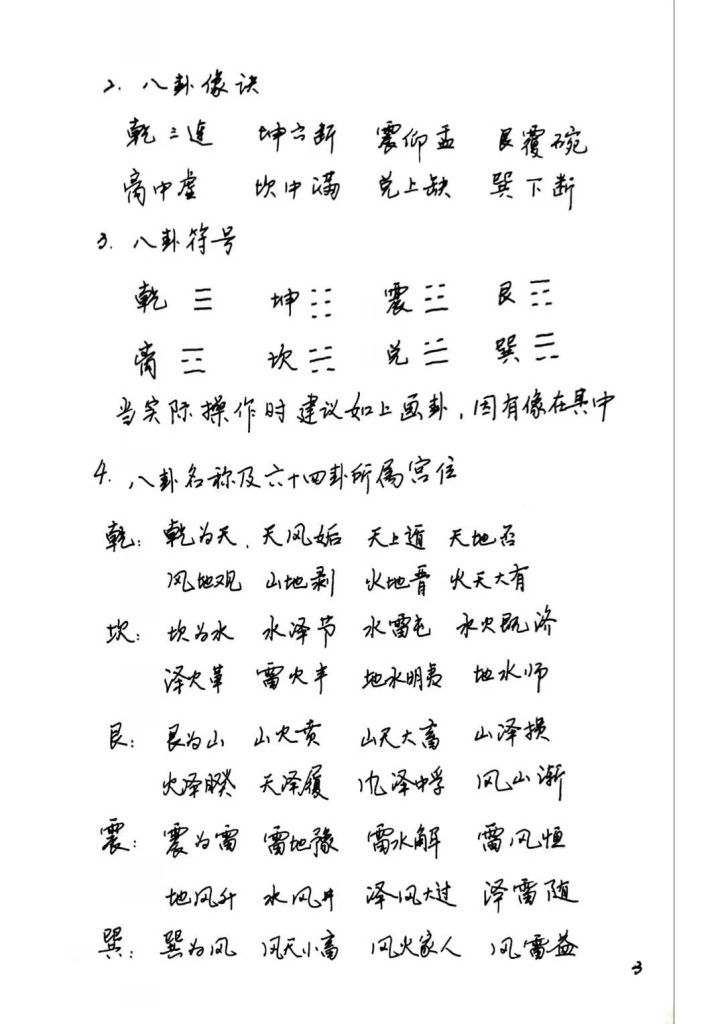 2. 八卦像诀
乾三连 坤六断 震仰盂 艮覆碗
离中虚 坎中满 兑上缺 巽下断
3. 八卦符号
乾 ☰ 坤 ☷ 震 ☳ 艮 ☶
离 ☲ 坎 ☵ 兑 ☱ 巽 ☴
当实际操作时建议如上画卦，因有像在其中
4. 八卦名称及六十四卦所属宫位
乾：乾为天、天风姤 天山遁 天地否
风地观 山地剥 火地晋 火天大有
坎：坎为水 水泽节 水雷屯 水火既济
泽火革 雷火丰 地水明夷 地水师
艮：艮为山 山火贲 山天大畜 山泽损
火泽睽 天泽履 风泽中孚 风山渐
震：震为雷 雷地豫 雷水解 雷风恒
地风升 水风井 泽风大过 泽雷随
巽：巽为风 风天小畜 风火家人 风雷益
3